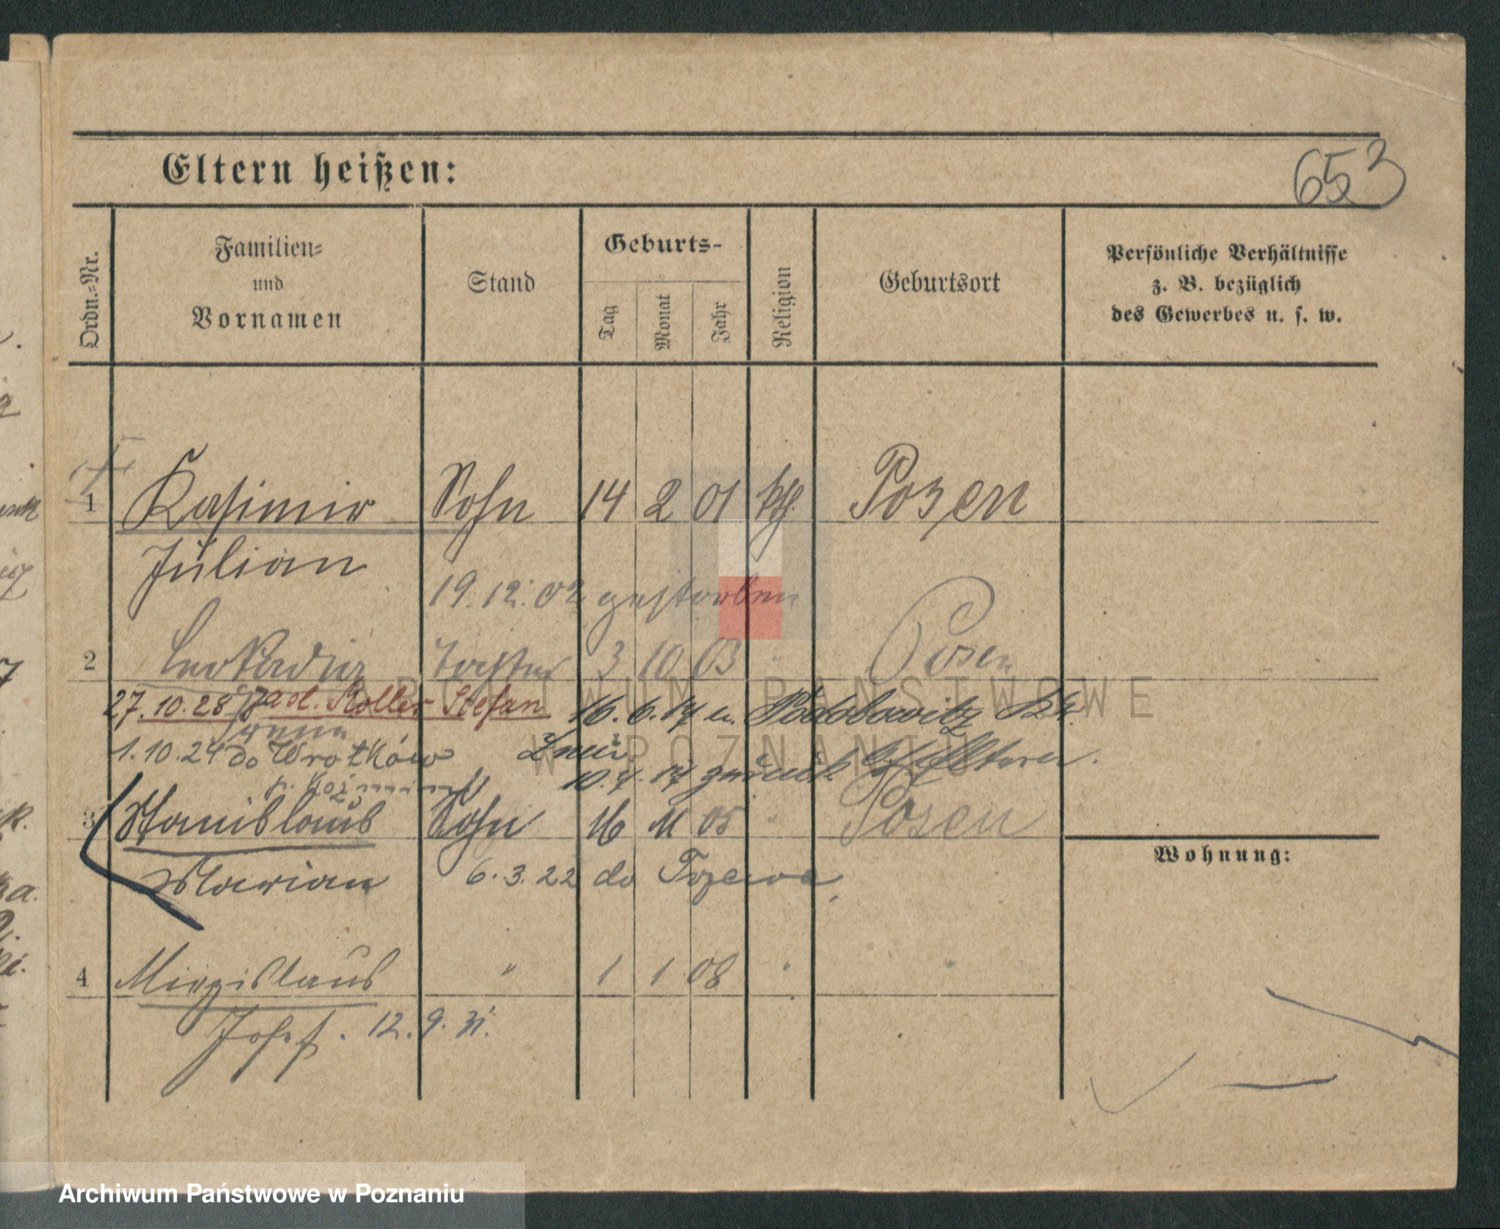 653
Eltern heißen:
Ordn.-Nr.
Familien-
und
Vornamen
Stand
Geburts-
Tag
Monat
Jahr
Religion
Geburtsort
Persönliche Verhältnisse
z. B. bezüglich
des Gewerbes u. s. w.
1 Kasimir Sohn 14 2 01 kth. Posen
Julian
19.12.02 gestorben
2 Leokadia Tochter 3 10 03 " Posen
27.10.28 ad. Koller Stefan 16.6.17 n.
1.10.24 do Wrotków
10.7.17 zurück Eltern.
3 Stanislaus Sohn 16 11 05 " Posen
Marian 6.3.22 do
Wohnung:
4 Miezislaus " 1 1 08 "
Josef. 12.9.31.
ARCHIWUM PAŃSTWOWE
W POZNANIU
Archiwum Państwowe w Poznaniu